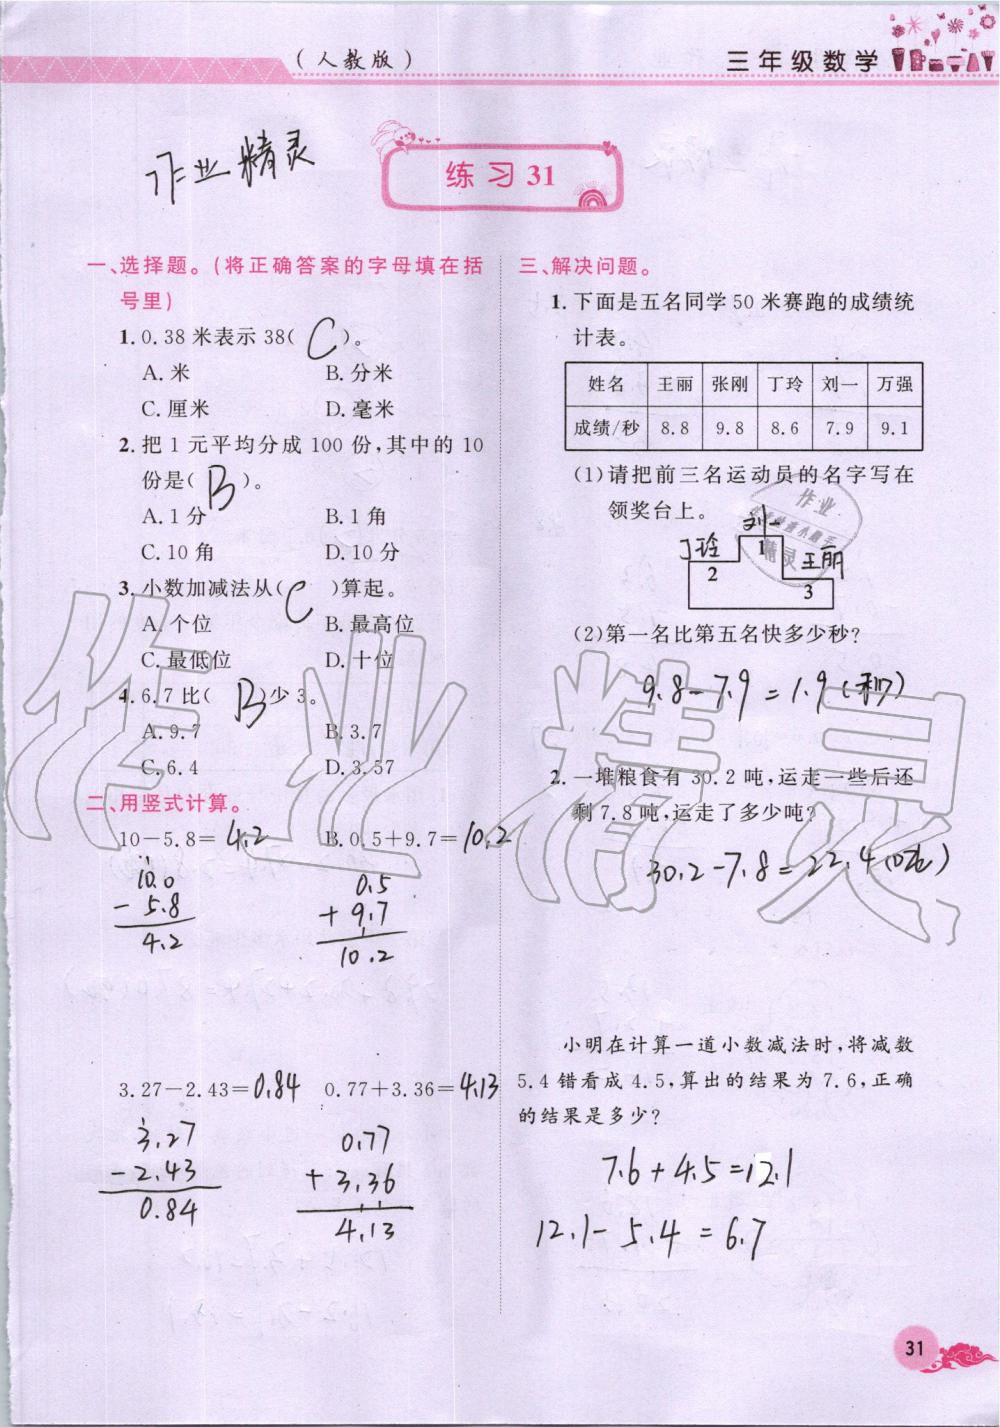 (人教版)
三年级数学
作业精灵
练习 31
一、选择题。(将正确答案的字母填在括
号里)
1. 0.38 米表示 38( C )。
A. 米 B. 分米
C. 厘米 D. 毫米
2. 把 1 元平均分成 100 份,其中的 10
份是( B )。
A. 1 分 B. 1 角
C. 10 角 D. 10 分
3. 小数加减法从( C )算起。
A. 个位 B. 最高位
C. 最低位 D. 十位
4. 6.7 比( B )少 3。
A. 9.7 B. 3.7
C. 6.4 D. 3.57
二、用竖式计算。
10-5.8= 4.2 B. 0.5+9.7= 10.2
10.0 0.5
- 5.8 + 9.7
4.2 10.2
3.27-2.43= 0.84 0.77+3.36= 4.13
3.27 0.77
- 2.43 + 3.36
0.84 4.13
三、解决问题。
1. 下面是五名同学 50 米赛跑的成绩统
计表。
姓名 王丽 张刚 丁玲 刘一 万强
成绩/秒 8.8 9.8 8.6 7.9 9.1
(1)请把前三名运动员的名字写在
领奖台上。
刘一
丁玲 1 王丽
2 3
(2)第一名比第五名快多少秒?
9.8-7.9=1.9(秒)
2. 一堆粮食有 30.2 吨,运走一些后还
剩 7.8 吨,运走了多少吨?
30.2-7.8=22.4(吨)
小明在计算一道小数减法时,将减数
5.4 错看成 4.5,算出的结果为 7.6,正确
的结果是多少?
7.6+4.5=12.1
12.1-5.4=6.7
作业精灵
作业
精灵
31